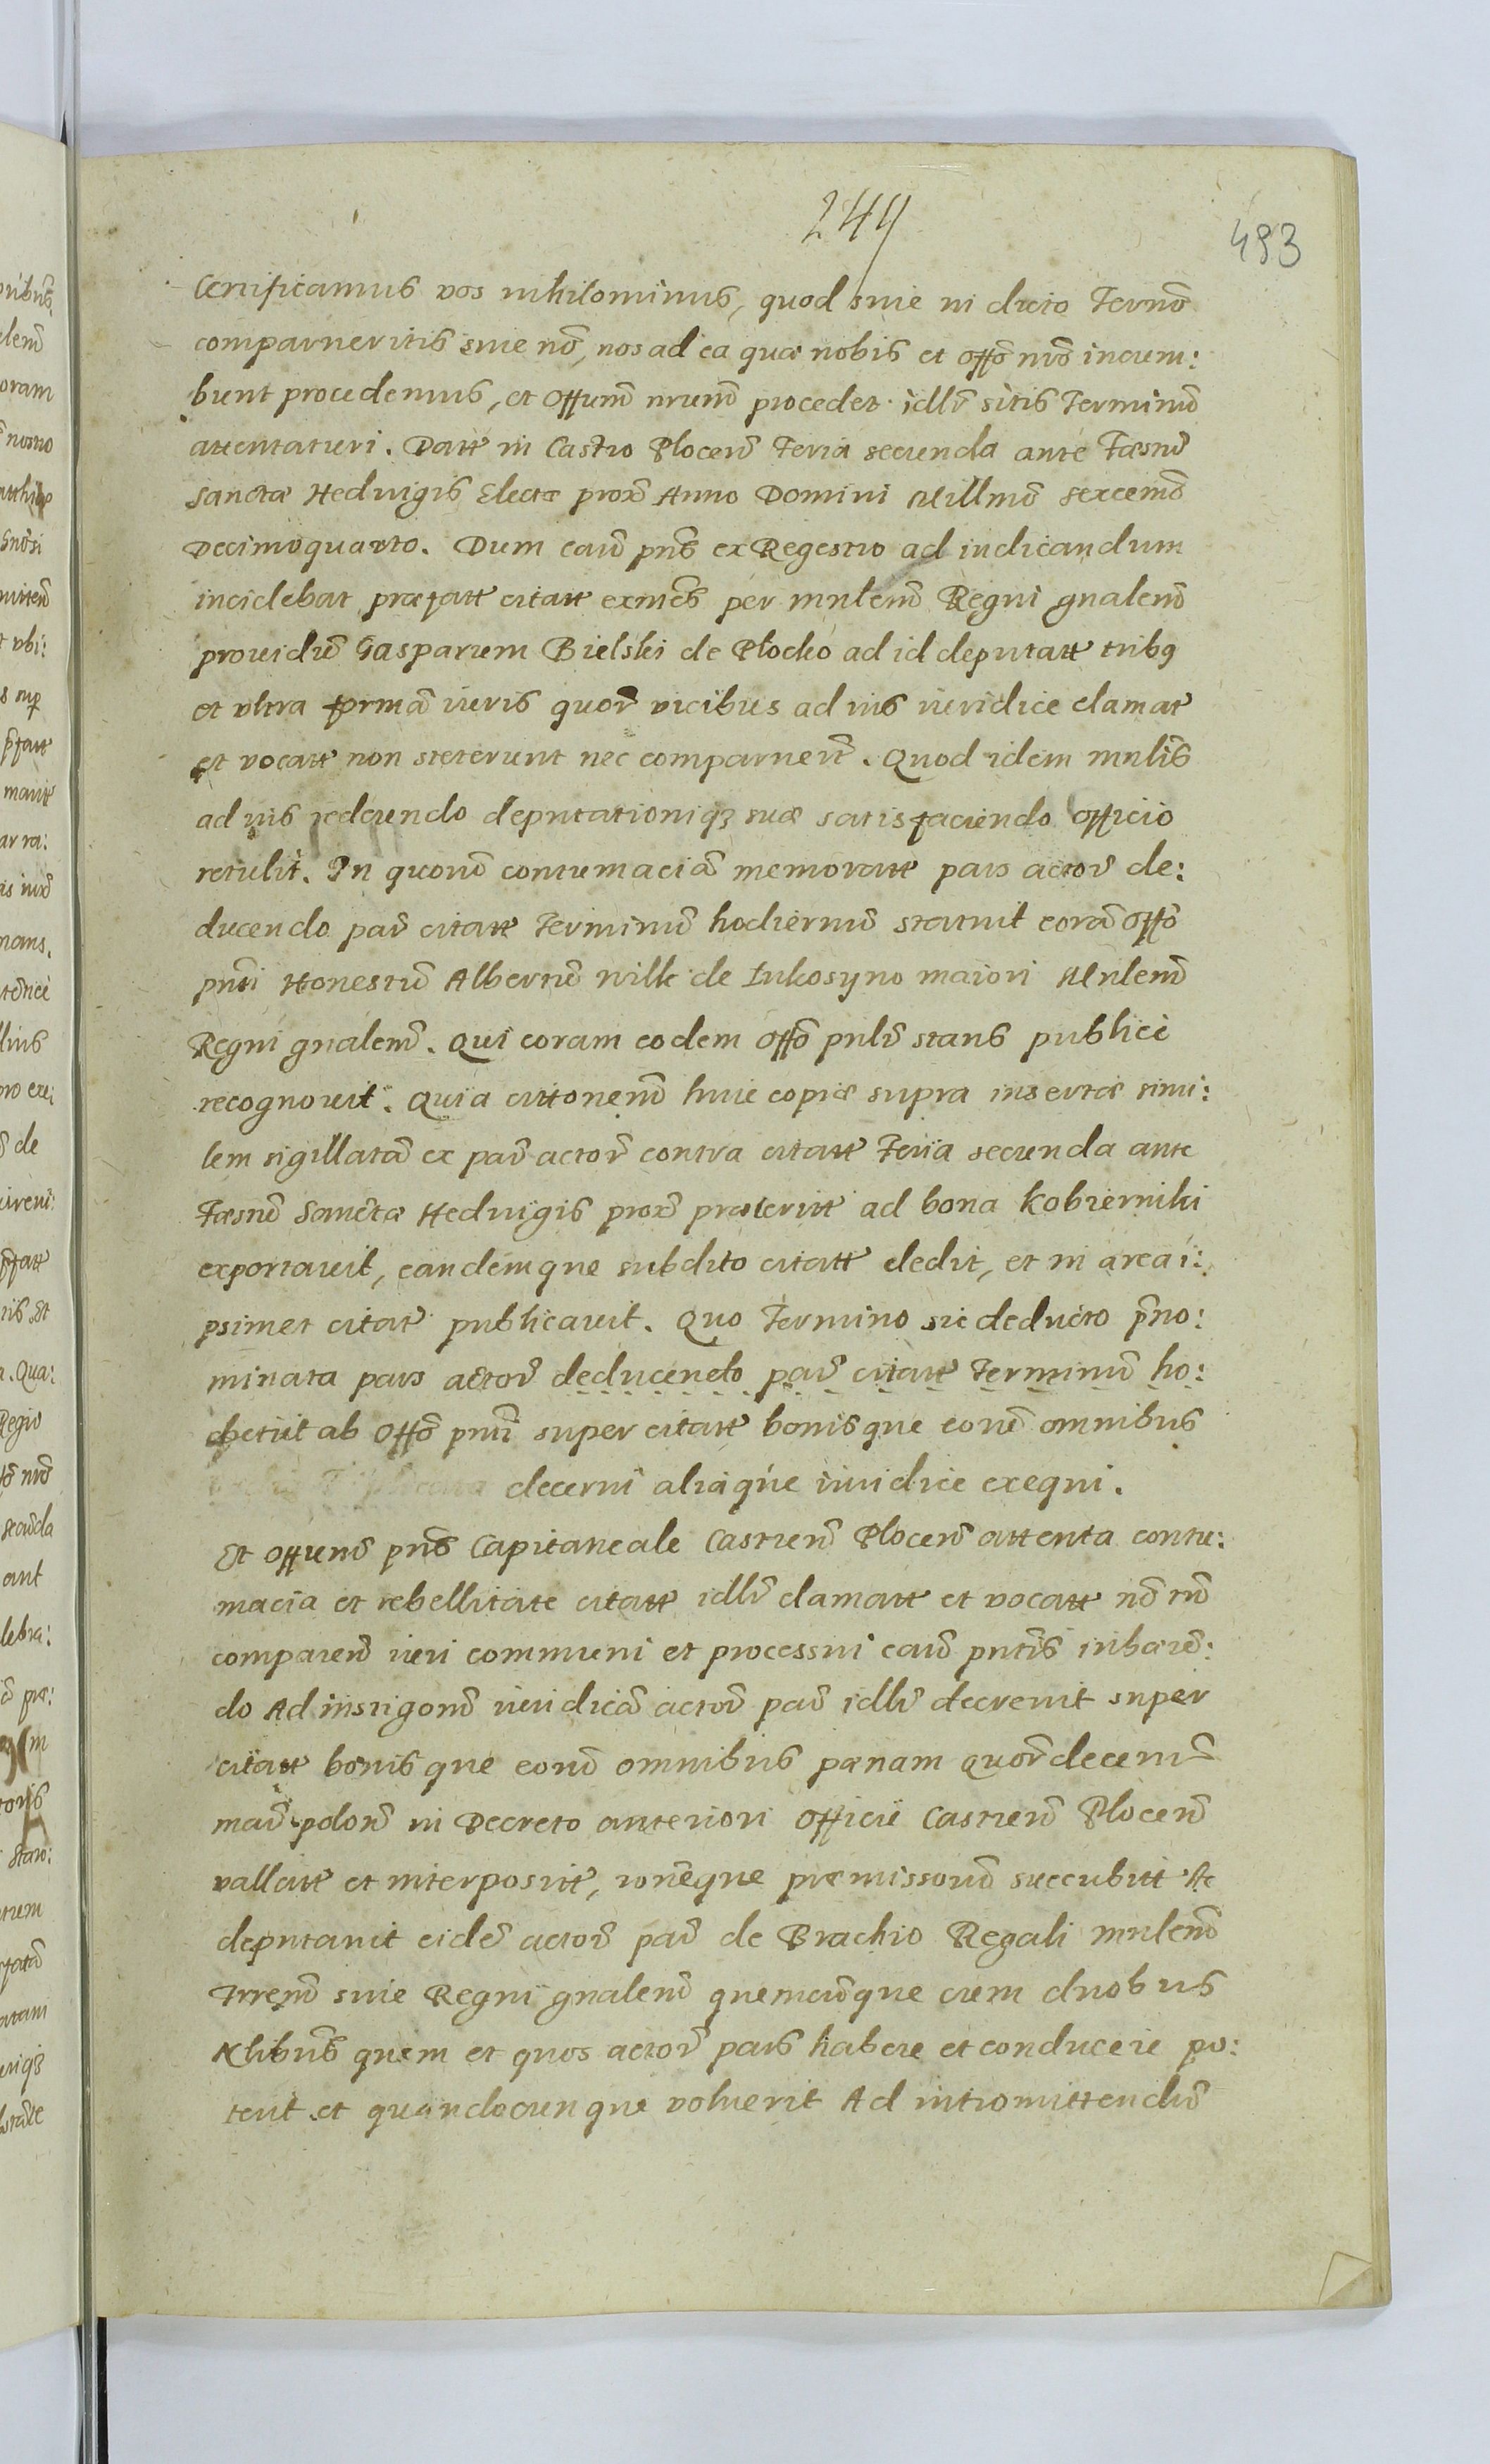 244
493
Certificamus vos nihilominus, quod siue in dicto Termō
comparueritis siue nō, nos ad ea quæ nobis et offō nrō incum:
bunt procedemus, et offum̄ nrum̄ procedet. idlr̄ sitis Terminū
attentaturi. Datt in Castro Plocen̄ Feria secunda ante Fæstū
Sanctæ Heduigis Electæ prox̄ Anno Domini Millmō sexcemō
Decimoquarto. Dum caūs pn̄s ex Regestro ad iudicandum
incidebat præfatt citatt exmēs per mnlem̄ Regni gnalem̄
prouidū Gasparum Bielski de Płocko ad id deputatt tribꝗ
et vltra formā iuris quor̄ vicibus ad ius iuridice clamat
et vocatt non steterunt nec comparuer̄t. Quod idem mnlis̄
ad ius redeundo deputationiqꝫ suæ satisfaciendo officio
retulit. In quorū contumaciā memoratt pars actor̄ de:
ducendo par̄ citatt Terminū hodiernū statuit corā offō
pnti Honestū Albertū wilk de Lukosyno maiori Mnlem̄
Regni gnalem̄. Qui coram eodem offō pnlr̄ stans publice
recognouit. Quia cittonem̄ huic copiæ supra insertæ simi:
lem sigillatā ex par̄ actor̄ contra citatt Feria secunda ante
Fæstū Sanctæ Heduigis prox̄ præteriit ad bona Kobierniki
exportauit, eandemque subdito citatt dedit, et in area i:
psimet citat publicauit. Quo Termino sic deducto p̄no:
minata pars actor̄ deducendo par̄ citatt Terminū ho:
petiit ab offō pnti super citatt bonisque eorū omnibus
decerni aliaque iuridice exequi.
Et offum̄ pn̄s Capitaneale Castren̄ Plocen̄ attenta contu:
macia et rebellitate citatt idlr̄ clamatt et vocatt nō tn̄
comparen̄ iuri communi et processui caūs pntis̄ inhæren̄:
do Ad instigonem̄ iuridicā actor̄ par̄ idlr̄ decreuit super
citatt bonisque eorū omnibus pænam quor̄decem
mar̄ polon̄ in Decreto anteriori officii Castren̄ Plocen̄
vallatt et interposit, ionēque præmissorū succubitt Ac
deputauit eidē actor̄ par̄ de Brachio Regali mnlem̄
Trrem̄ siue Regni gnalem̄ quemcunque cum duobus
Nlibus̄ quem et quos actor̄ pars habere et conducere po:
terit et quandocunque voluerit Ad intromittendū